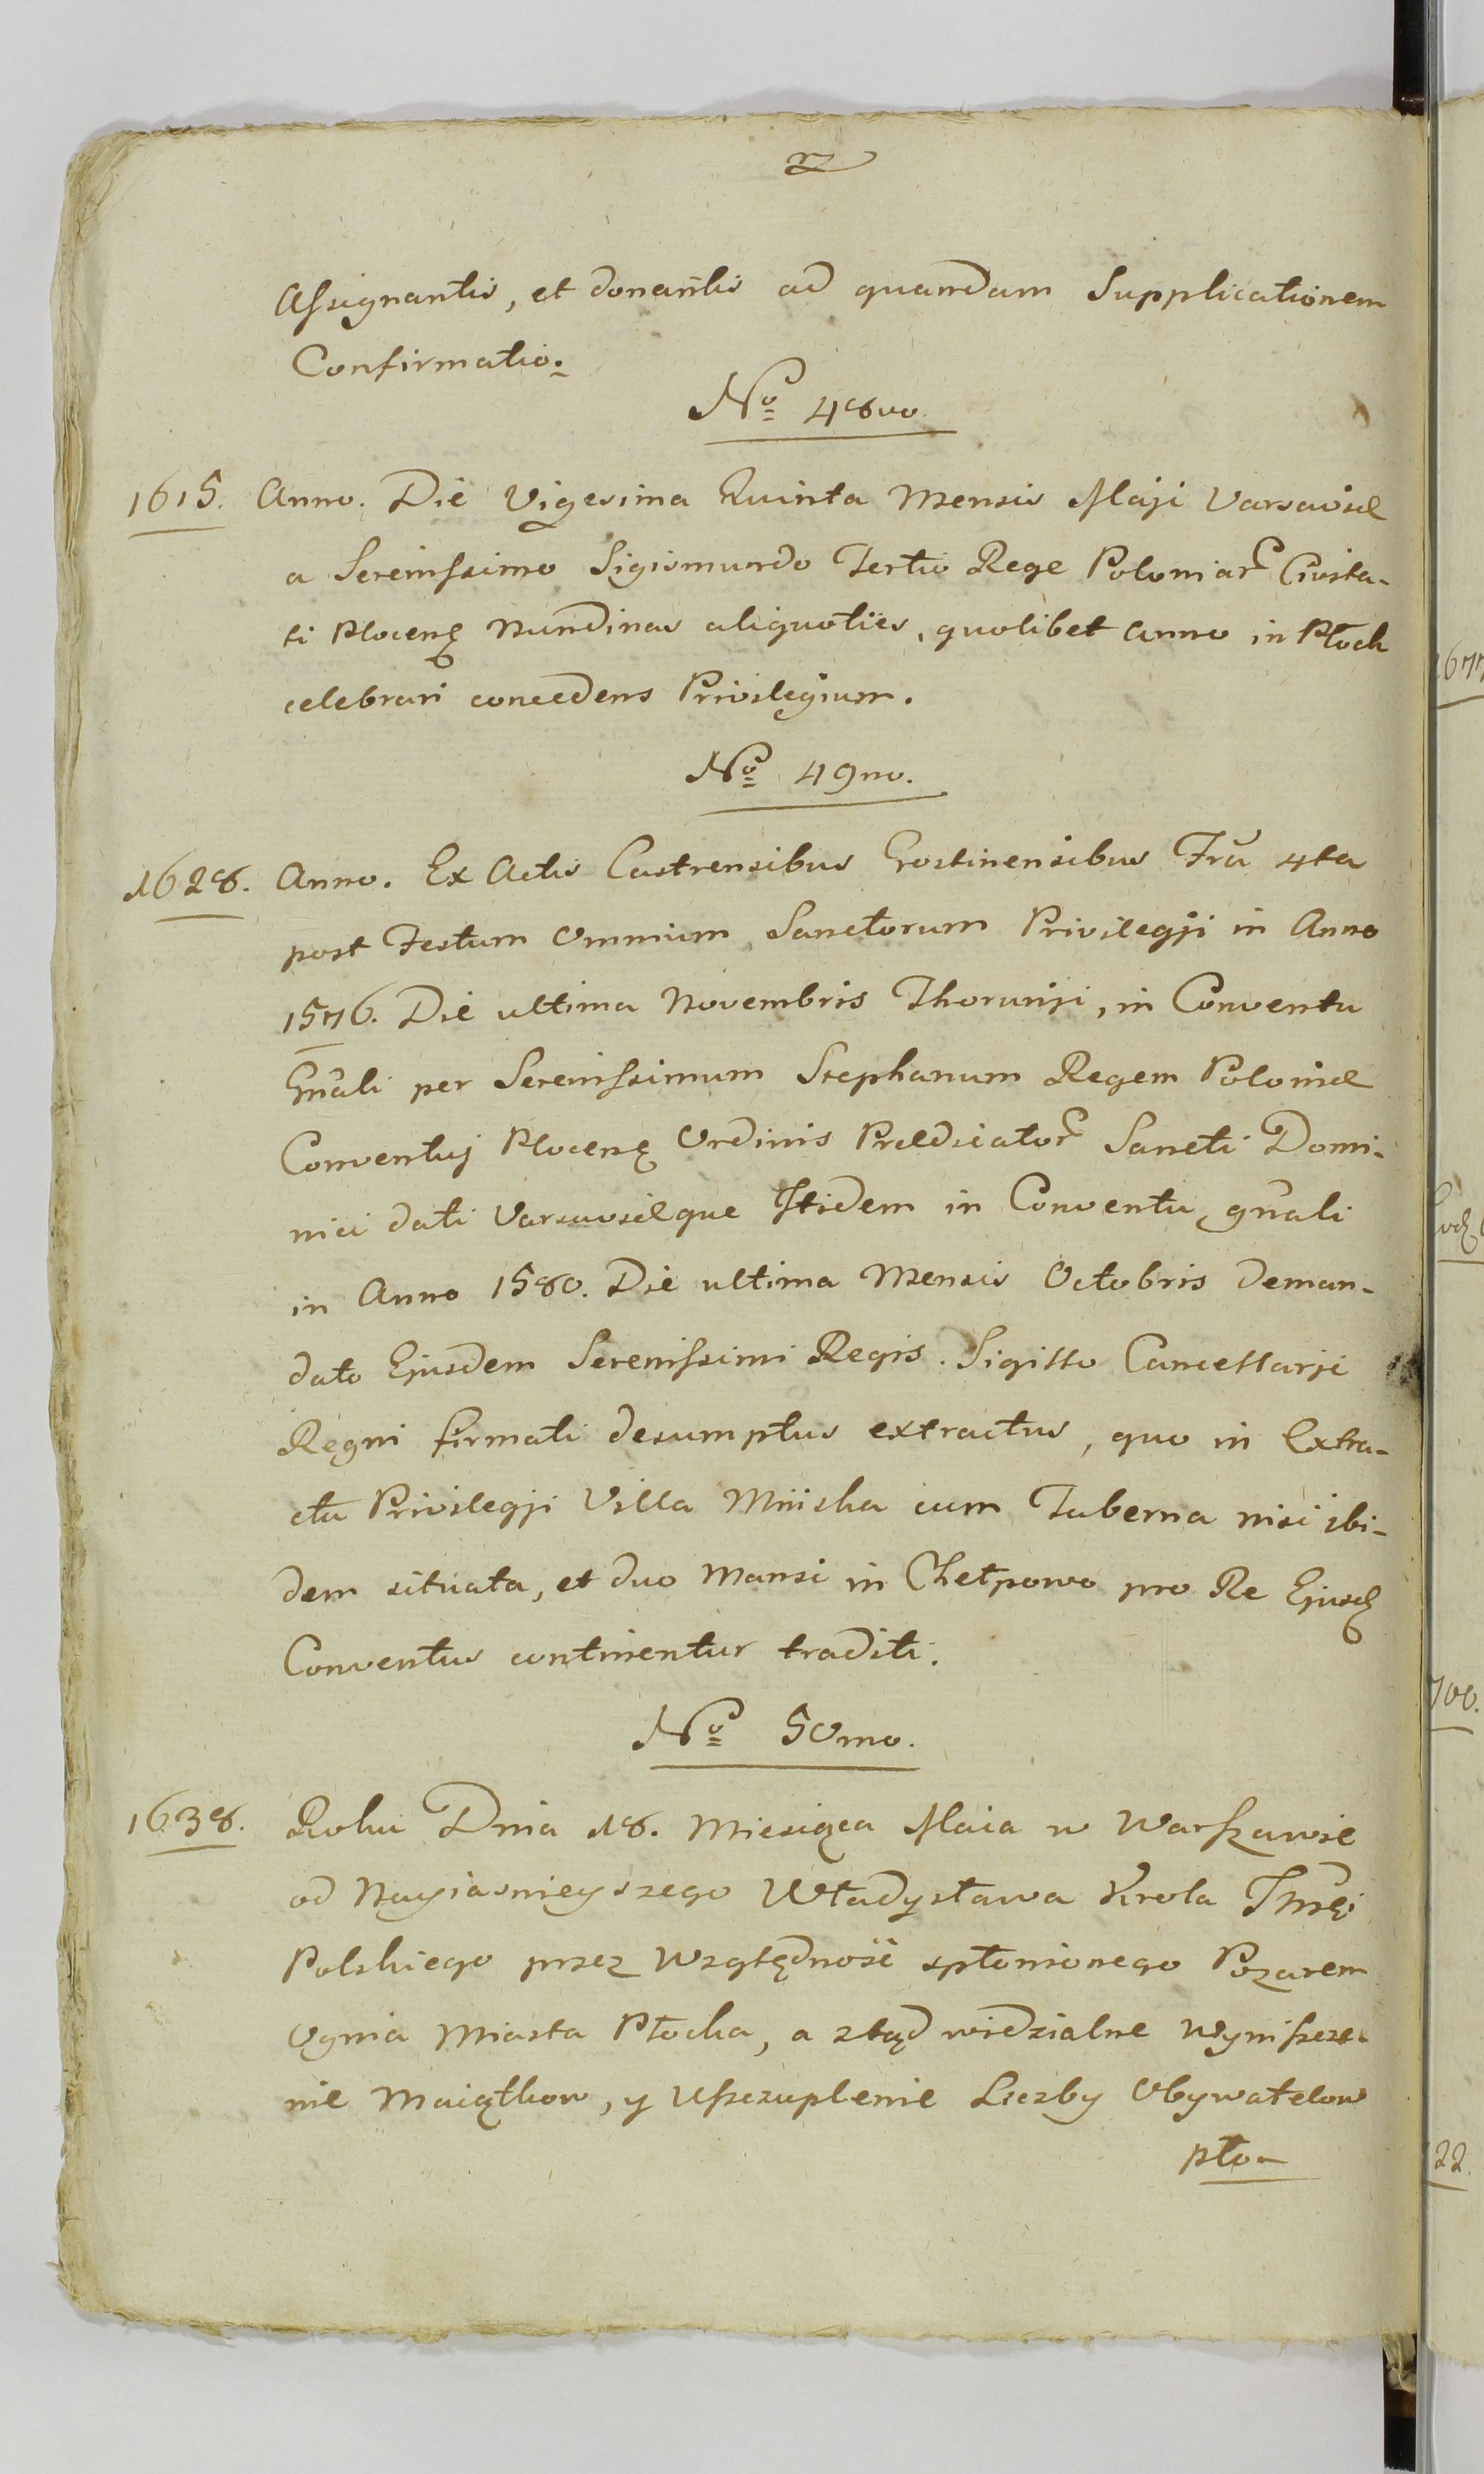 Assignantis, et donantis ad quandam Supplicationem
Confirmatio.
No 48vo.
1615. Anno. Die Vigesima Quinta Mensis Maji Varsaviæ
a Serenissimo Sigismundo Tertio Rege Poloniar Civita-
ti Plocenę Nundinas aliquoties, quolibet Anno in Płock
celebrari concedens Privilegium.
No 49no.
1628. Anno. Ex Actis Castrensibus Gostinensibus Fria 4ta
post Festum Omnium Sanctorum Privilegji in Anno
1576. Die ultima Novembris Thorunji, in Conventu
Gnali per Serenissimum Stephanum Regem Poloniæ
Conventuj Plocenę Ordinis Prædicator Sancti Domi-
nici dati Varsaviæque Itidem in Conventu gnali
in Anno 1580. Die ultima Mensis Octobris deman-
dato Ejusdem Serenissimi Regis. Sigillo Cancellarji
Regni firmati desumptus extractus, quo in Extra-
ctu Privilegji Villa Mniska cum Taberna nisi ibi-
dem situata, et duo Mansi in Chełpowo pro Re Ejusd
Conventus continentur traditi.
No 50mo.
1638. Roku Dnia 18. Miesiąca Maia w Warszawie
od Nayiasnieyszego Władysława Krola Jmći
Polskiego przez Względność spłonionego Pozarem
Ognia Miasta Płocka, a ztąd widzialne Wyniszcze-
nie Maiątkow, y Uszczuplenie Liczby Obywatelow
pło-